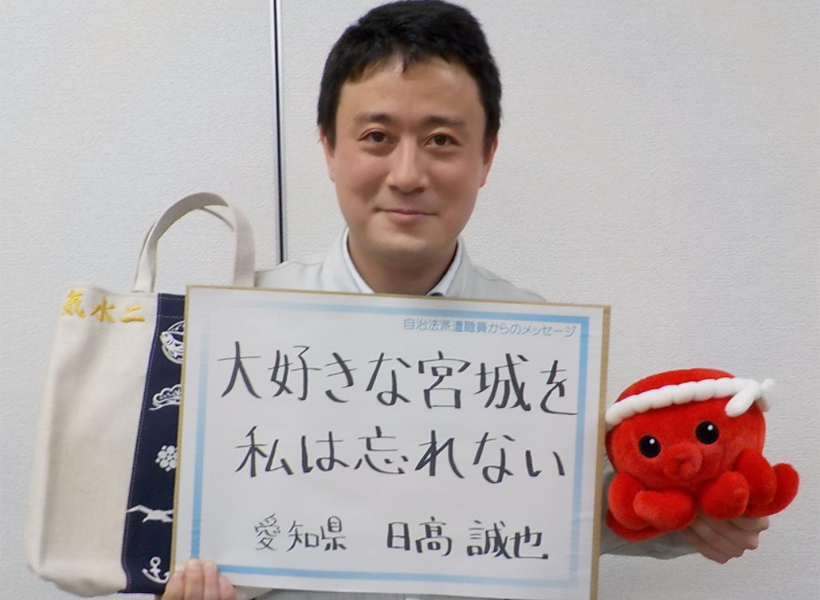 気水二
自治法派遣職員からのメッセージ
大好きな宮城を
私は忘れない
愛知県 日髙 誠也